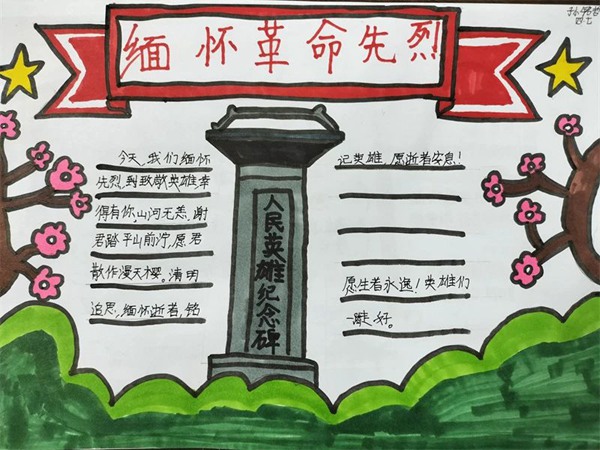 缅怀革命先烈
四七
今天,我们缅怀
先烈,到致敬英雄幸
得有你,山河无恙,谢
君踏平山前泞,愿君
散作漫天樱。清明
追思,缅怀逝者,铭
人民英雄纪念碑
记英雄,愿逝者安息!
愿生者永逸!英雄们
好。